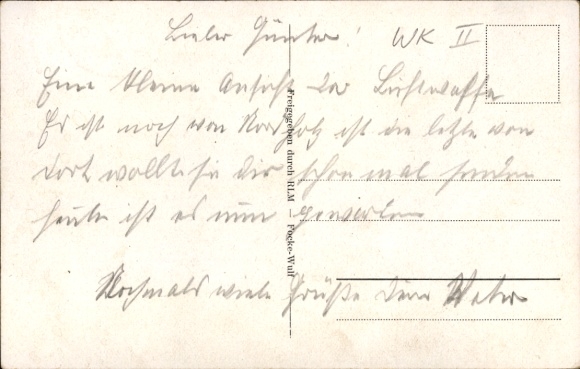 Lieber Günter!
WK II
Eine kleine Ansicht der Luftwaffe
Es ist noch von Nordholz ist die letzte von
dort wollte sie dir schon mal senden
heute ist es nun geworden
Nochmals viele Grüße dein Vater
Freigegeben durch RLM — Focke-Wulf